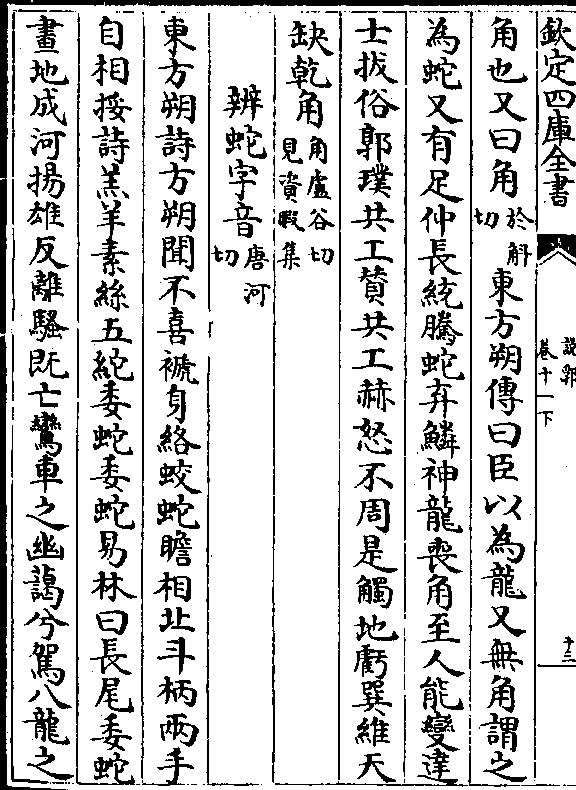 欽定四庫全書
說郛
卷十一下
十三
角也又曰角於斛切東方朔傳曰臣以為龍又無角謂之
為蛇又有足仲長統騰蛇弃鱗神龍喪角至人能變達
士拔俗郭璞共工贊共工赫怒不周是觸地虧巽維天
缺乾角角盧谷切見資暇集
辨蛇字音唐河切
東方朔詩方朔聞不喜褫身絡蛟蛇瞻相北斗柄兩手
自相挼詩羔羊素絲五紽委蛇委蛇易林曰長尾委蛇
畫地成河揚雄反離騷既亡鸞車之幽藹兮駕八龍之